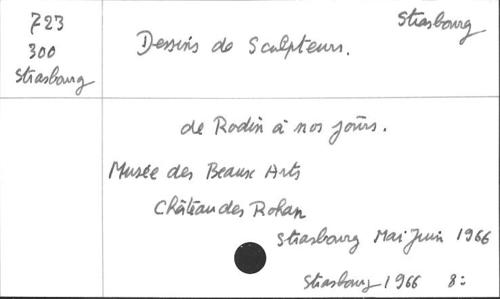 723
300
Strasbourg
Strasbourg
Dessins de Sculpteurs.
de Rodin à nos jours.
Musée des Beaux Arts
Château des Rohan
Strasbourg Mai Juin 1966
Strasbourg 1966 8: